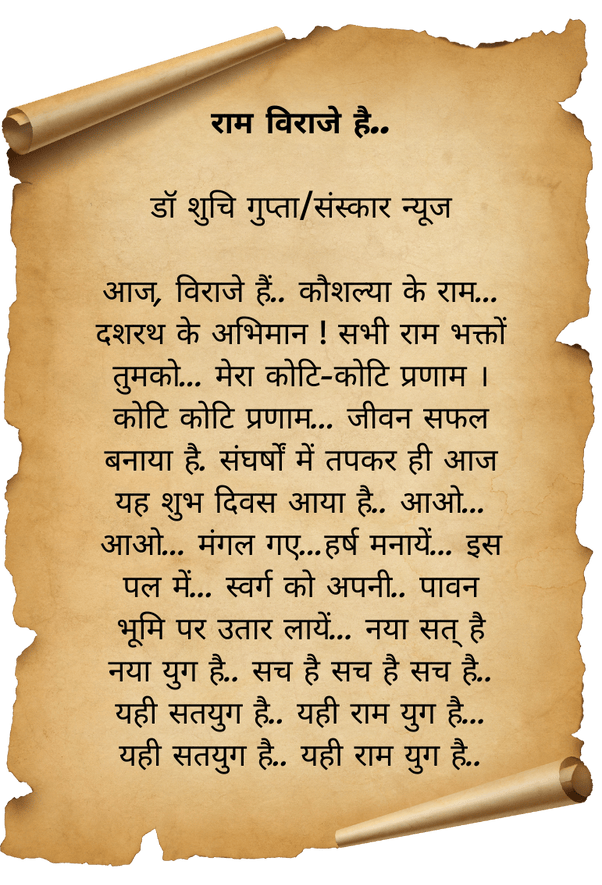 राम विराजे है..
डॉ शुचि गुप्ता/संस्कार न्यूज
आज, विराजे हैं.. कौशल्या के राम...
दशरथ के अभिमान ! सभी राम भक्तों
तुमको... मेरा कोटि-कोटि प्रणाम ।
कोटि कोटि प्रणाम... जीवन सफल
बनाया है. संघर्षों में तपकर ही आज
यह शुभ दिवस आया है.. आओ...
आओ... मंगल गए...हर्ष मनायें... इस
पल में... स्वर्ग को अपनी.. पावन
भूमि पर उतार लायें... नया सत् है
नया युग है.. सच है सच है सच है..
यही सतयुग है.. यही राम युग है...
यही सतयुग है.. यही राम युग है..